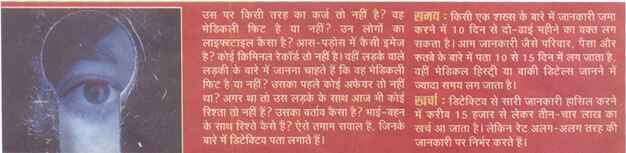 उस पर किसी तरह का कर्ज तो नहीं है? वह
मेडिकली फिट है या नहीं? उन लोगों का
लाइफ्स्टाइल कैसा है? आस-पड़ोस में कैसी इमेज
है? कोई क्रिमिनल रेकॉर्ड तो नहीं है। वहीं लड़के वाले
लड़की के बारे में जानना चाहते हैं कि वह मेडिकली
फिट है या नहीं? उसका पहले कोई अफेयर तो नहीं
था? अगर था तो उस लड़के के साथ आज भी कोई
रिश्ता तो नहीं है? उसका बर्ताव कैसा है? भाई-बहन
के साथ रिश्ते कैसे हैं? ऐसे तमाम सवाल हैं, जिनके
बारे में डिटेक्टिव पता लगाते हैं।
समय : किसी एक शख्स के बारे में जानकारी जमा
करने में 10 दिन से दो-ढाई महीने का वक्त लग
सकता है। आम जानकारी जैसे परिवार, पैसा और
रुतबे के बारे में पता 10 से 15 दिन में लग जाता है,
वहीं मेडिकल हिस्ट्री या बाकी डिटेल्स जानने में
ज्यादा समय लग जाता है।
खर्चा : डिटेक्टिव से सारी जानकारी हासिल करने
में करीब 15 हजार से लेकर तीन-चार लाख का
खर्च आ जाता है। लेकिन रेट अलग-अलग तरह की
जानकारी पर निर्भर करते हैं।